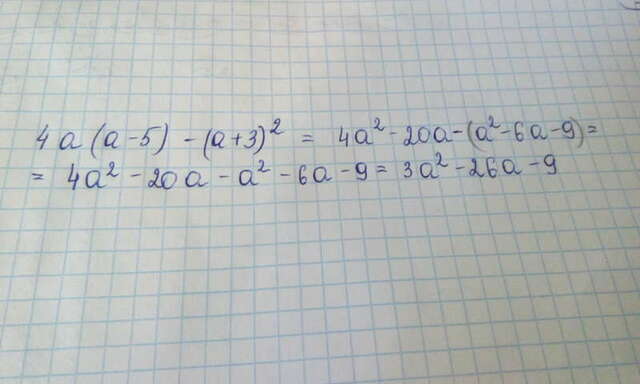 4a(a-5)-(a+3)² = 4a²-20a-(a²-6a-9)=
= 4a²-20a-a²-6a-9=3a²-26a-9